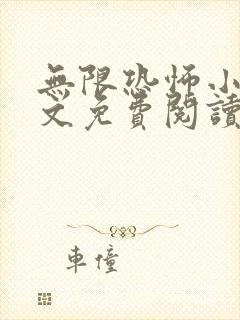 無限恐怖小
文免費閱讀
車憧